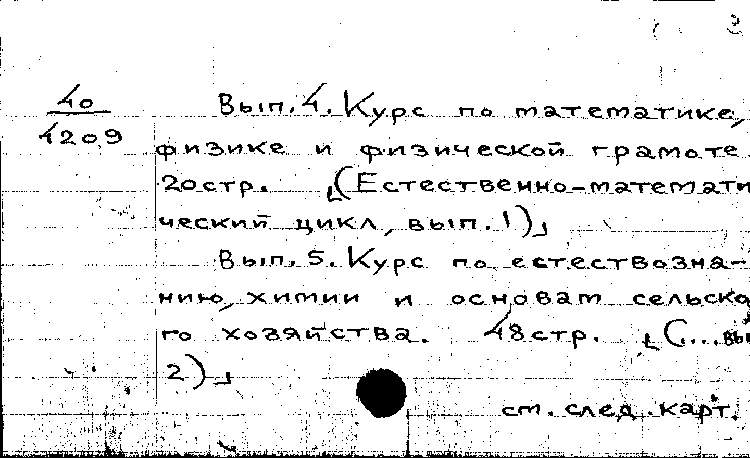 3
40
4209
Вып. 4. Курс по математике,
физике и физической грамоте.
20 стр. [(Естественно-математи
ческий цикл, вып. 1)]
Вып. 5. Курс по естествозна-
нию, химии и основам сельско
го хозяйства. 48 стр. [(...вып
2)]
см. след. карт.